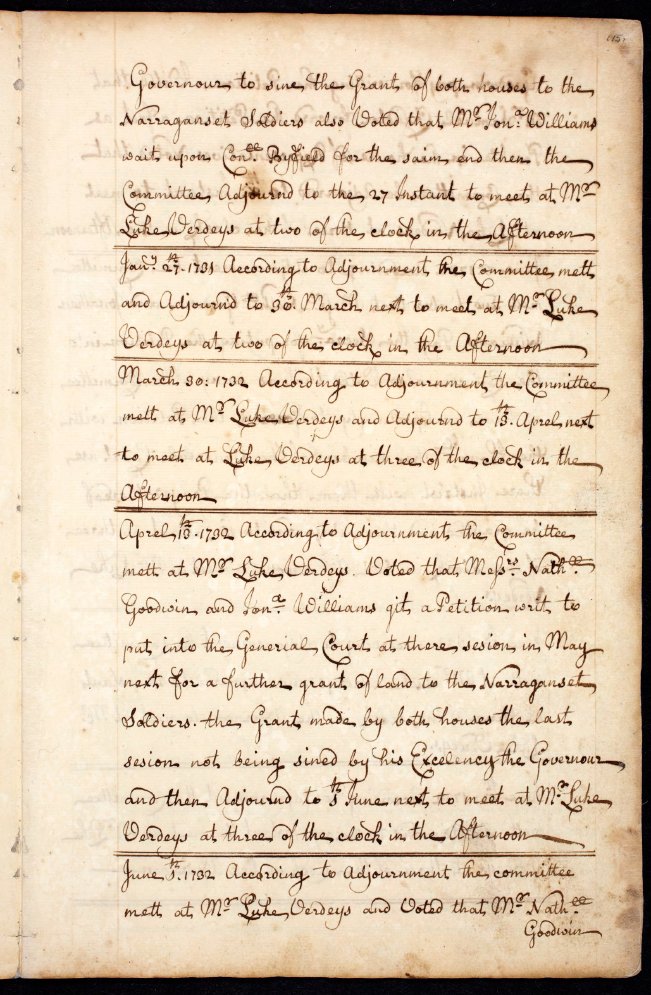 115
Governour to sine the Grant of both houses to the
Narraganset Soldiers also Voted that Mr Jonª Williams
wait upon Conll Byfield for the saim and then the
Committee Adjournd to the 27 Instant to meet at Mr
Luke Verdeys at two of the clock in the Afternoon
Janry 27th. 1731 According to Adjournment the Committee mett
and Adjournd to 30th March next to meet at Mr Luke
Verdeys at two of the clock in the Afternoon
March 30: 1732 According to Adjournment the Committee
mett at Mr Luke Verdeys and Adjournd to 13th. Aprel next
to meet at Luke Verdeys at three of the clock in the
Afternoon
Aprel 13th. 1732 According to Adjournment the Committee
mett at Mr Luke Verdeys. Voted that Messrs Nathll
Goodwin and Jonª Williams git a Petition writ to
put into the Generial Court at there sesion in May
next for a further grant of land to the Narraganset
Soldiers. the Grant made by both houses the last
sesion not being sined by his Excelency the Governour
and then Adjournd to 1th June next to meet at Mr Luke
Verdeys at three of the clock in the Afternoon
June 1th. 1732 According to Adjournment the committee
mett at Mr Luke Verdeys and Voted that Mr Nathll
Goodwin